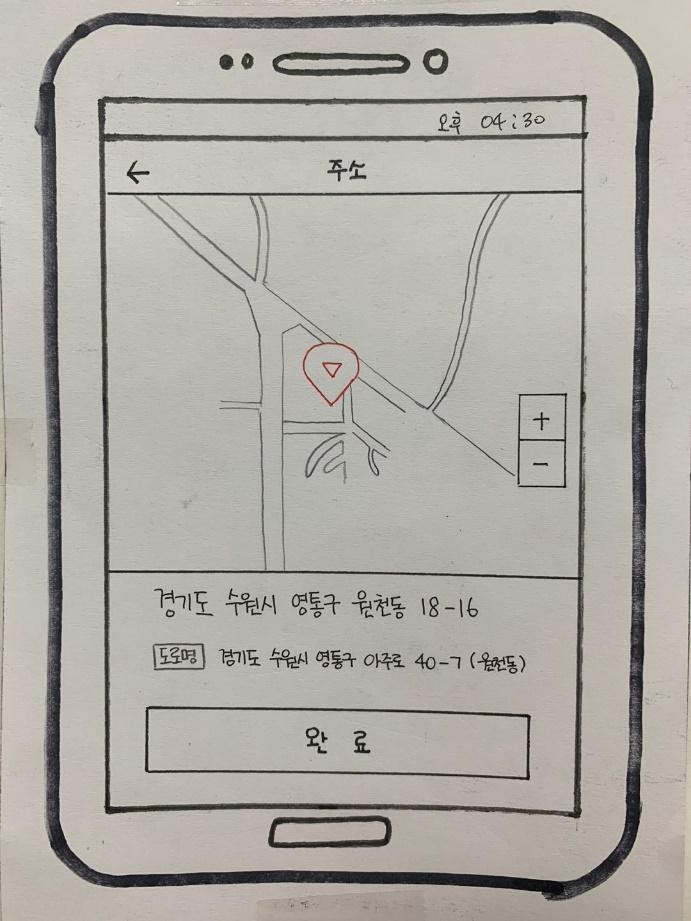 오후 04:30
← 주소
+
-
경기도 수원시 영통구 원천동 18-16
도로명 경기도 수원시 영통구 아주로 40-7 (원천동)
완료